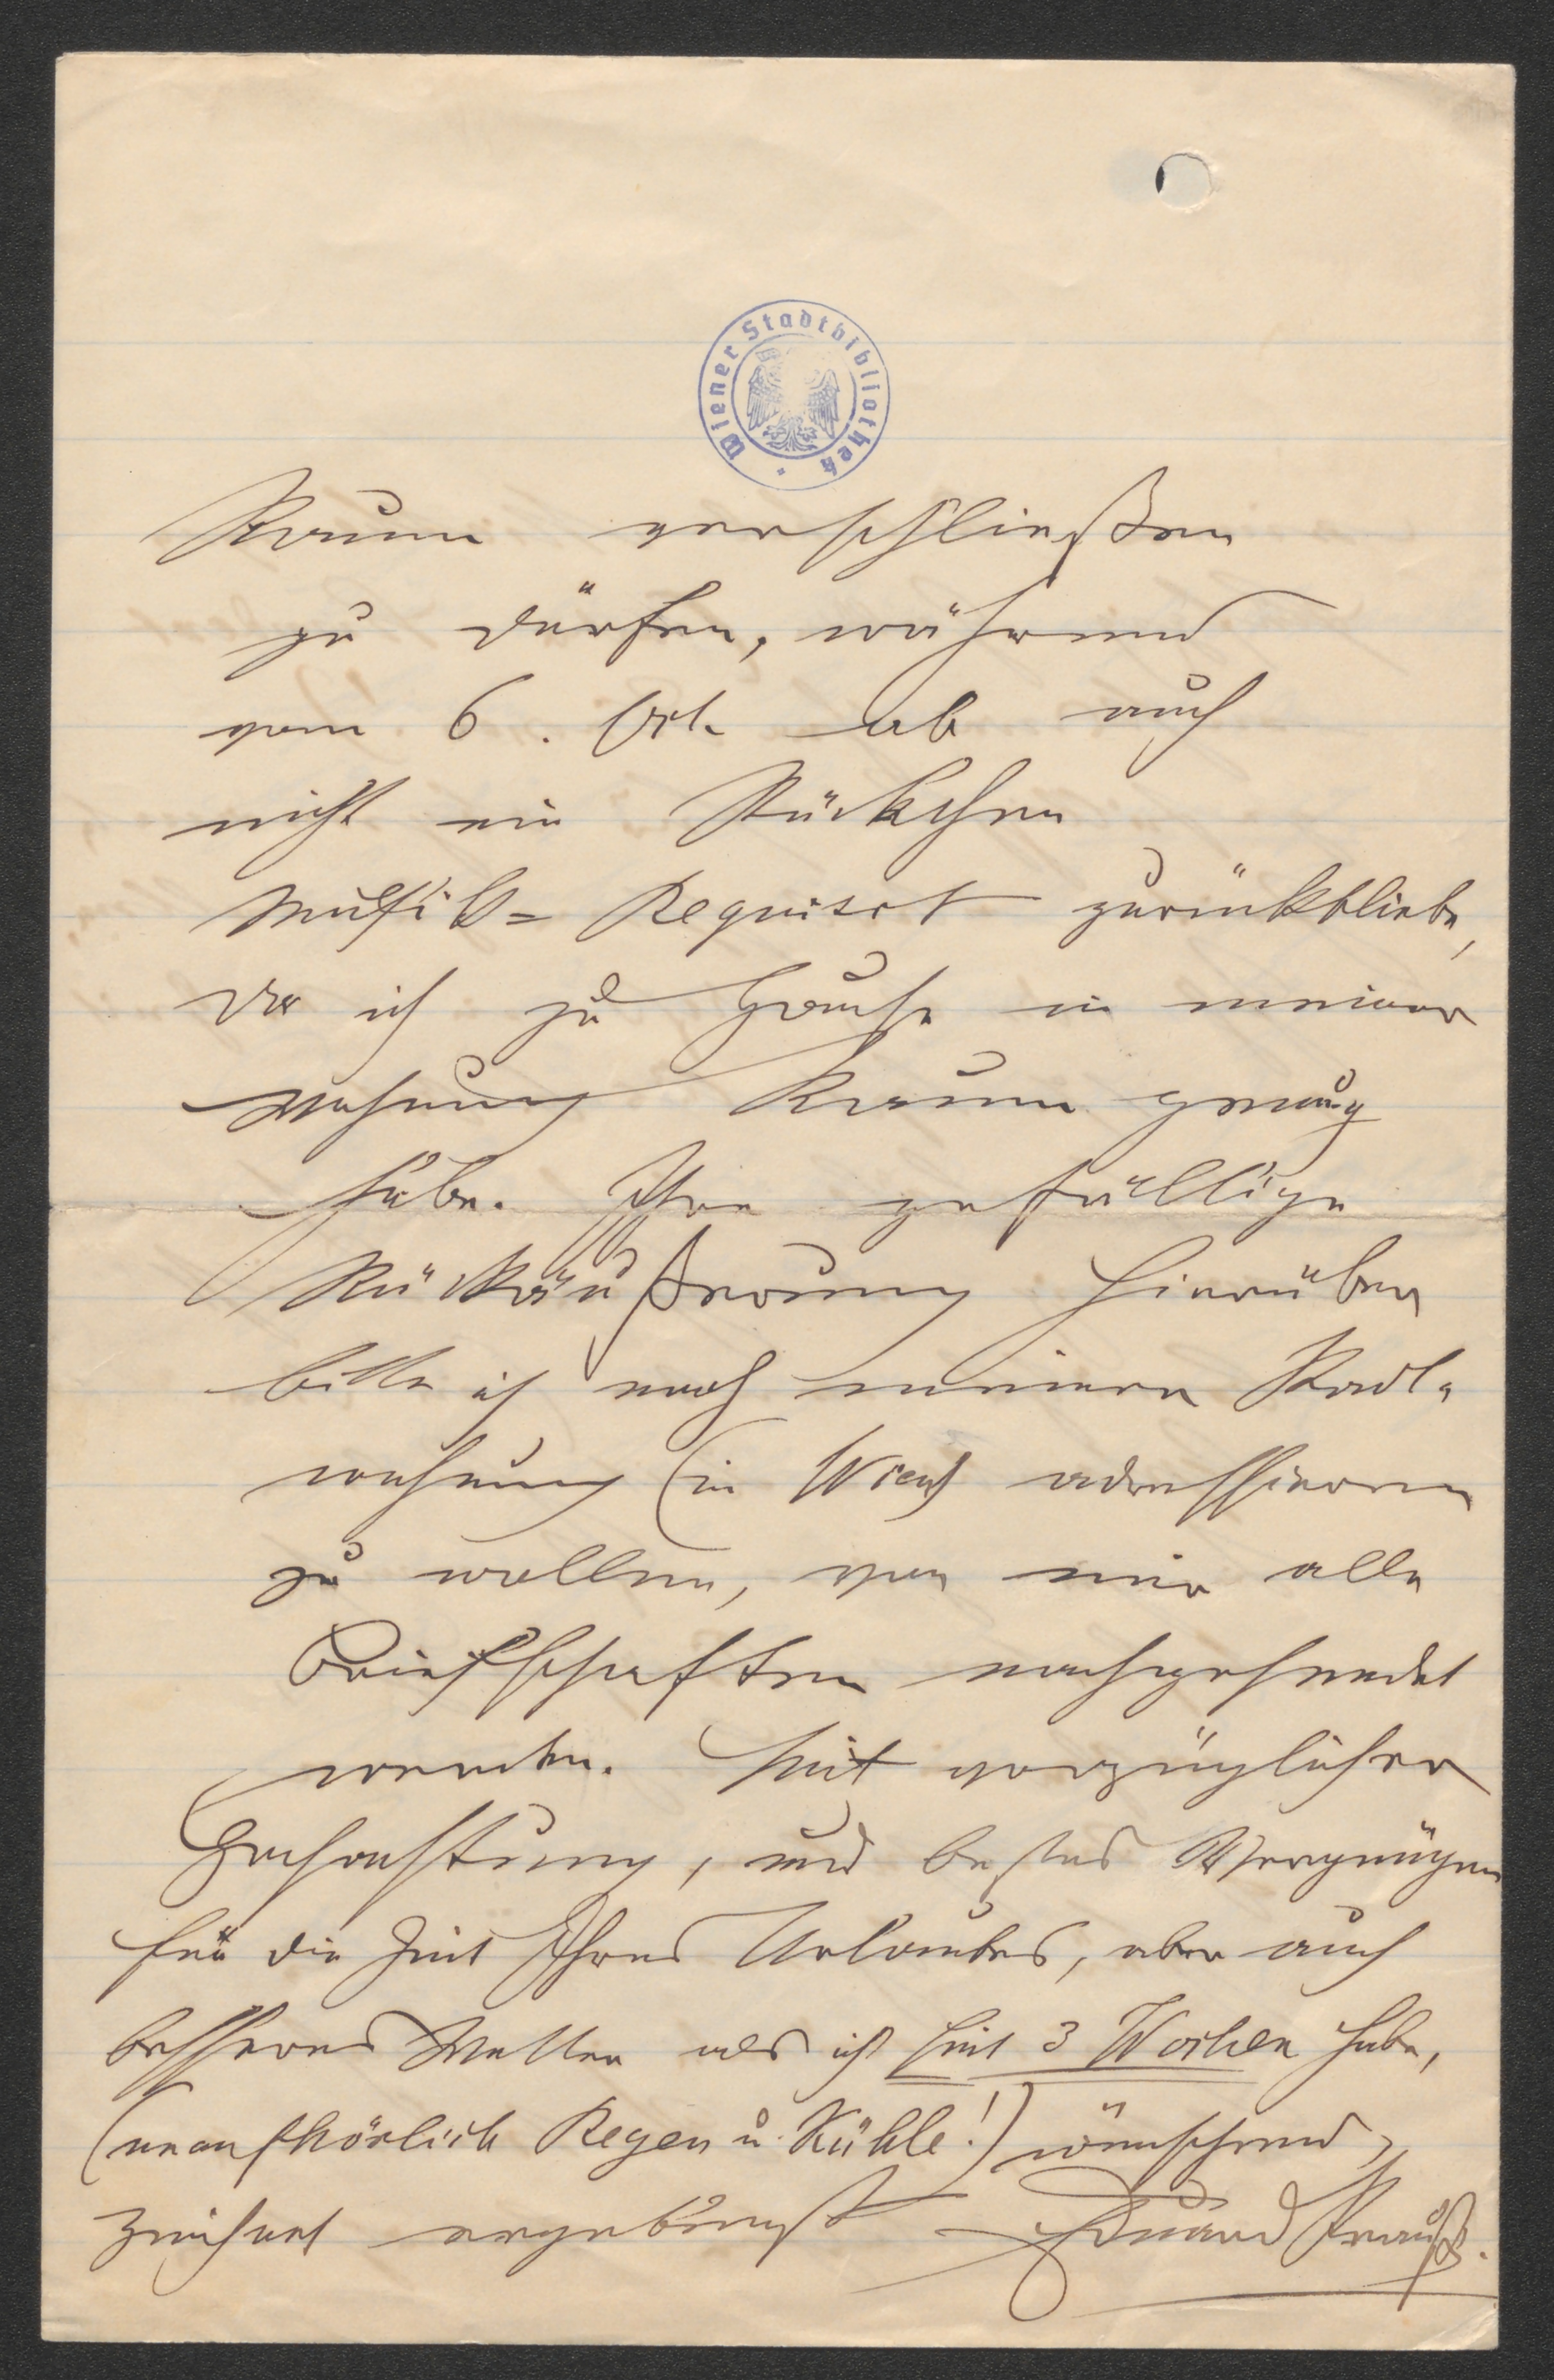 Wiener Stadtbibliothek
Raum verschließen
zu dürfen, während
vom 6. Oct. ab auch
nicht ein Stückchen
Musik= Requisit zurückbliebe,
da ich zu Hause in meiner
Wohnung Raum genug
habe. Ihre gefällige
Rückäußerung hierüber
bitte ich nach meiner Stadt=
wohnung (in Wien) adressieren
zu wollen, von mir alle
Briefschaften nachgesendet
werden. Mit vorzüglicher
Hochachtung, und bestes Vergnügen
für die Zeit Ihres Urlaubes, aber auch
besseres Wetter als ich seit 3 Wochen habe,
(unaufhörlich Regen u. Kühle!) wünschend,
zeichnet ergebenst Eduard Strauß.